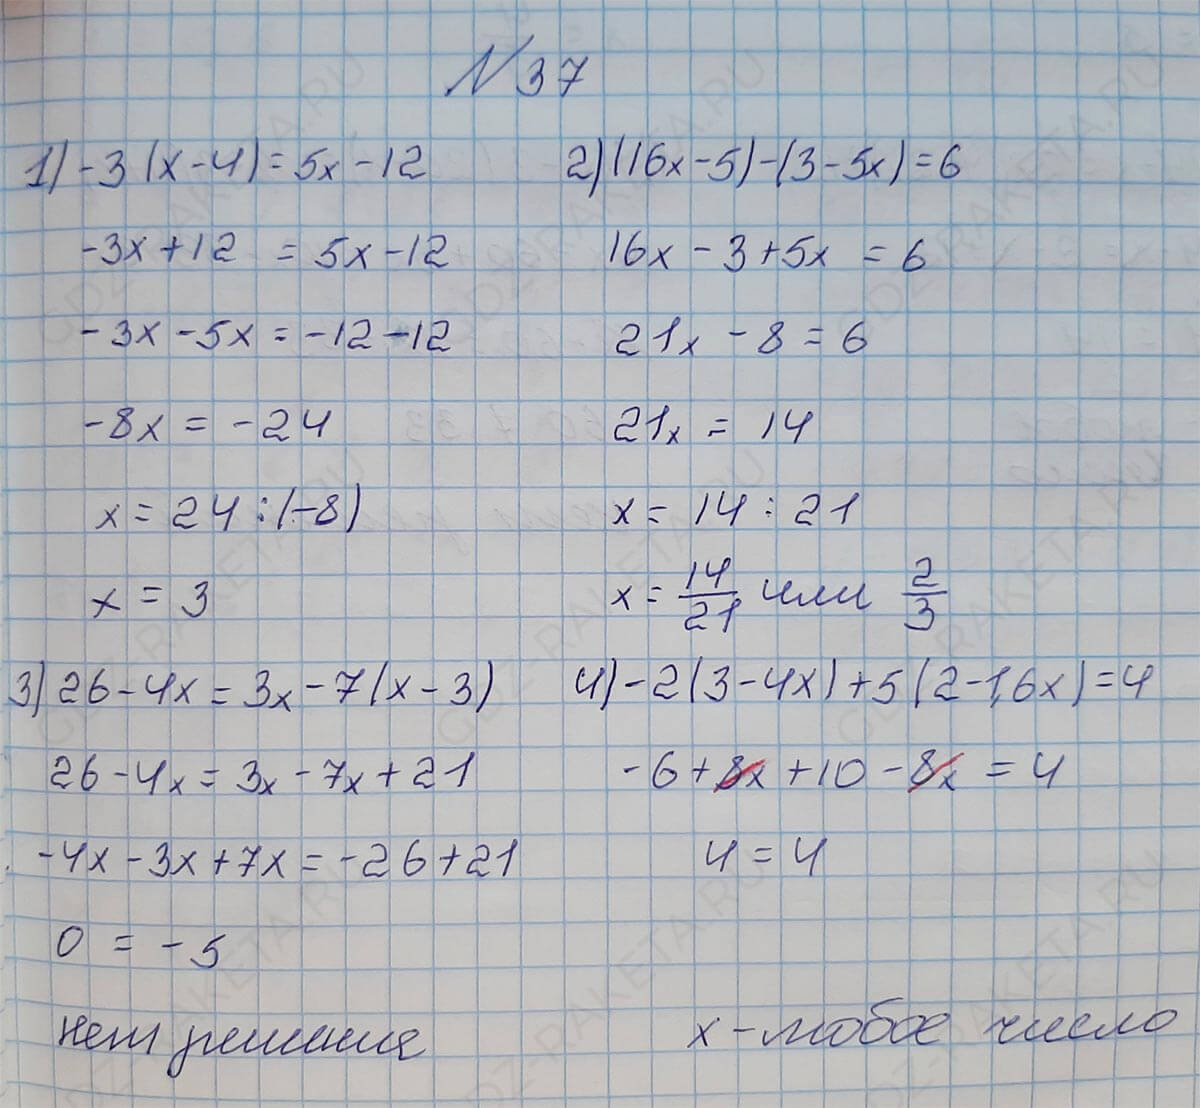 №37
1) -3(x-4)=5x-12
-3x+12 = 5x-12
-3x-5x=-12-12
-8x = -24
x=24:(-8)
x = 3
2) (16x-5)-(3-5x)=6
16x-3+5x = 6
21x-8=6
21x = 14
x= 14:21
x=14/21 или 2/3
3) 26-4x=3x-7(x-3)
26-4x=3x-7x+21
-4x-3x+7x=-26+21
0 = -5
нет решения
4) -2(3-4x)+5(2-1,6x)=4
-6+8x+10-8x=4
4=4
x-любое число
GDZ-RAKETA.RU